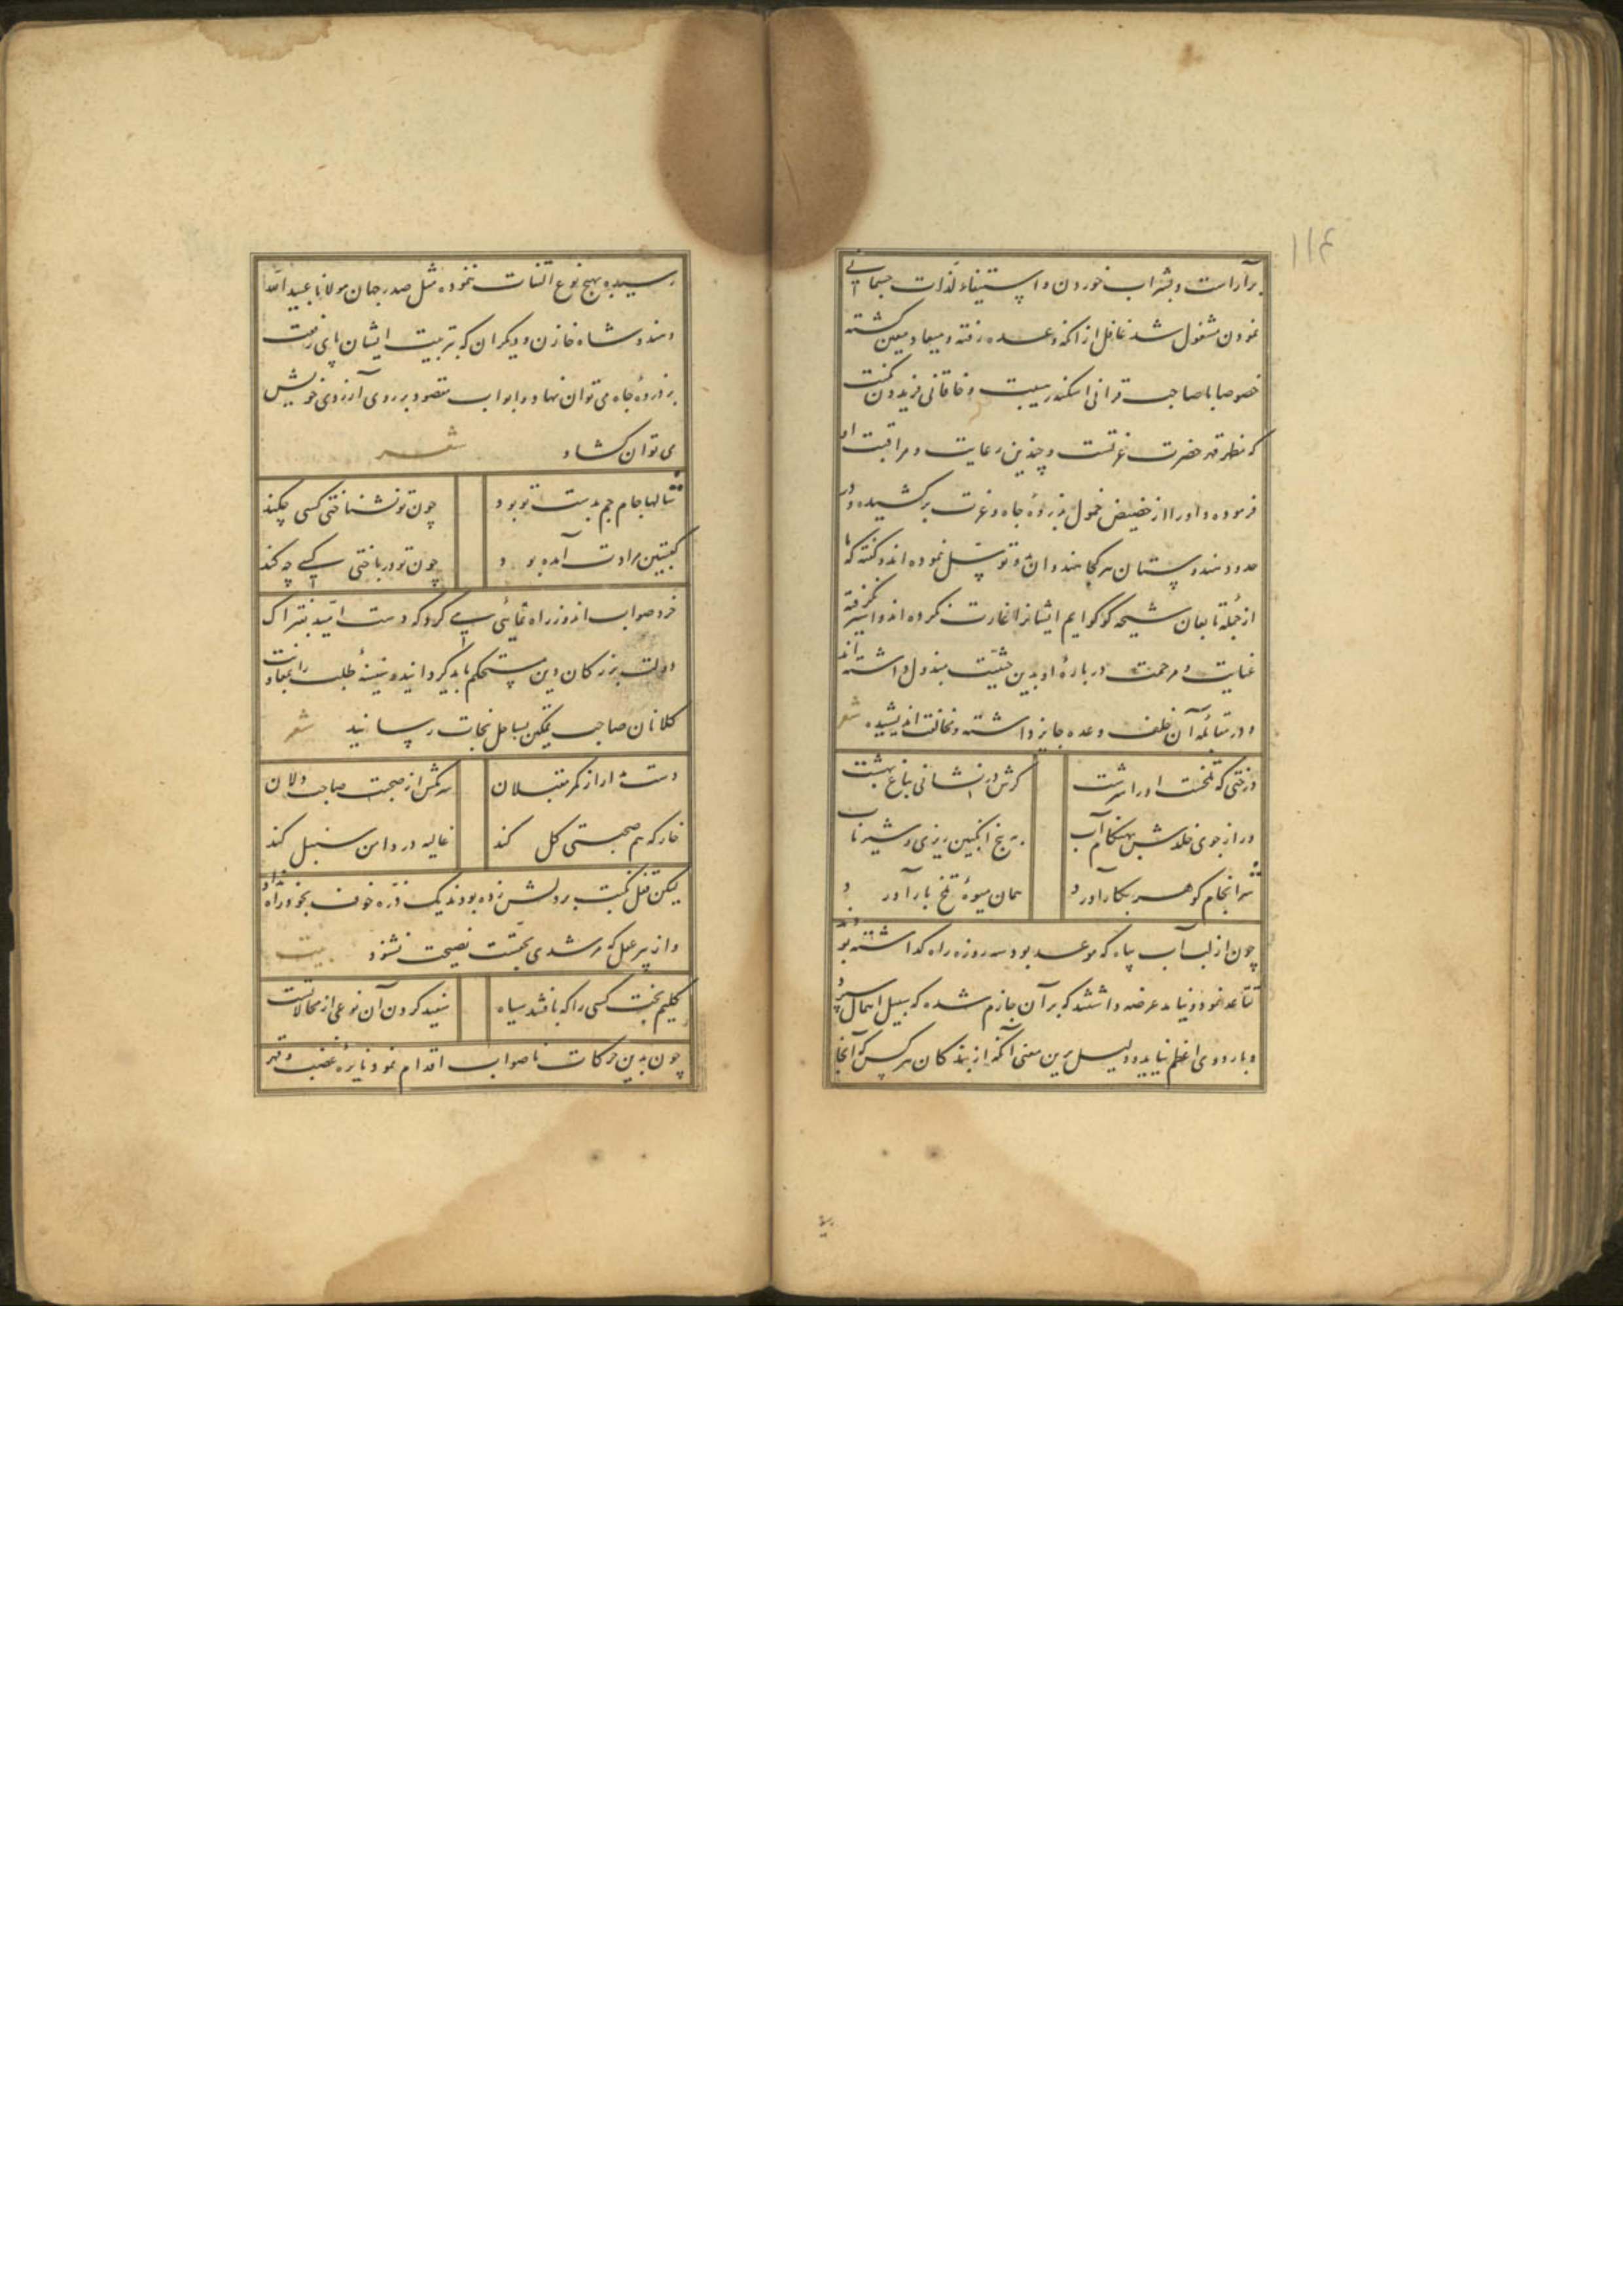 ۱۱۴
برآراست و بشراب خوردن و استیفاء لذات جسمانی
نمودن مشغول شد غافل از آنکه وعده رفته و میعاد معین کشته
خصوصا با صاحب قرانی اسکندر هیبت و خاقانی فریدون
که حضرت عزتست و چندین رعایت و مراقبت او
فرموده و او را از حضیض خمول بذروهٔ جاه و عزت برکشیده و در
حدود هندوستان هر کجا هندوان توسل نموده اند و کفته که ما
از جملهٔ تابعان شیخه کوکرایم ایشانرا غارت نکرده اند و اسیر نکرفته
عنایت و مرحمت دربارهٔ او بدین حیثیت مبذول داشته اند
و در آن خلف وعده جایز داشته و مخالفت اندیشیده شعر
درختی که تلخست او را سرشت کرش در نشانی بباغ بهشت
ور از جوی خلدش بهنکام آب به بیخ انکبین ریزی و شیر ناب
سرانجام کوهر بکار آورد همان میوهٔ تلخ بار آورد
چون از لب آب بیاه که موعد بود سه روزه راه کذاشته بودند
تقاعد نمود و نیامد عرضه داشتند که بر آن جازم شده که سبیل اهمال سپرد
و باردوی اعظم نیاید و دلیل برین معنی آنکه از بندکان هر کس که آنجا
رسیده بهیچ نوع التفات ننموده مثل صدر جهان مولانا عبید الله
و هندو شاه خازن و دیکران که بتربیت ایشان پای رفعت
بر ذروهٔ جاه می توان نهاد و ابواب مقصود بر روی آرزوی خویش
می توان کشاد شعر
سالها جام جم بدست تو بود چون تو نشناختی کسی چکند
کعبتین مرادت آمده بود چون تو در باختی کسی چه کند
خرد صواب اندوز راه نمائی می کرد که دست امید بفتراک
دولت بزرکان دین مستحکم باید کردانید و سفینهٔ طلب را
کلانان صاحب تمکین بساحل نجات رسانید شعر
دست مدار از کمر مقبلان سر مکش از صحبت صاحب دلان
خار که هم صحبتی کل کند غالیه در دامن سنبل کند
لیکن قفل نکبت بر دلش زده بودند یک ذره خوف بخود راه نداد
و از پیر عقل که مرشدی نصیحت نشنود بیت
کلیم بخت کسی را که بافتند سیاه سفید کردن آن نوعی از محالاتست
چون بدین حرکات ناصواب اقدام نمود نایرهٔ غضب و قهر